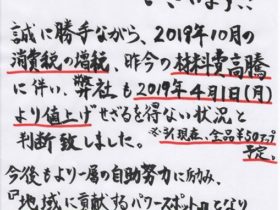 誠に勝手ながら、2019年10月の
消費税の増税、昨今の材料費高騰
に伴い、弊社も2019年4月1日(月)
より値上げせざるを得ない状況と
判断致しました。
※現在、全品¥50アップ
予定。
今後もより一層の自助努力に励み、
『地域に貢献するパワースポット』となり